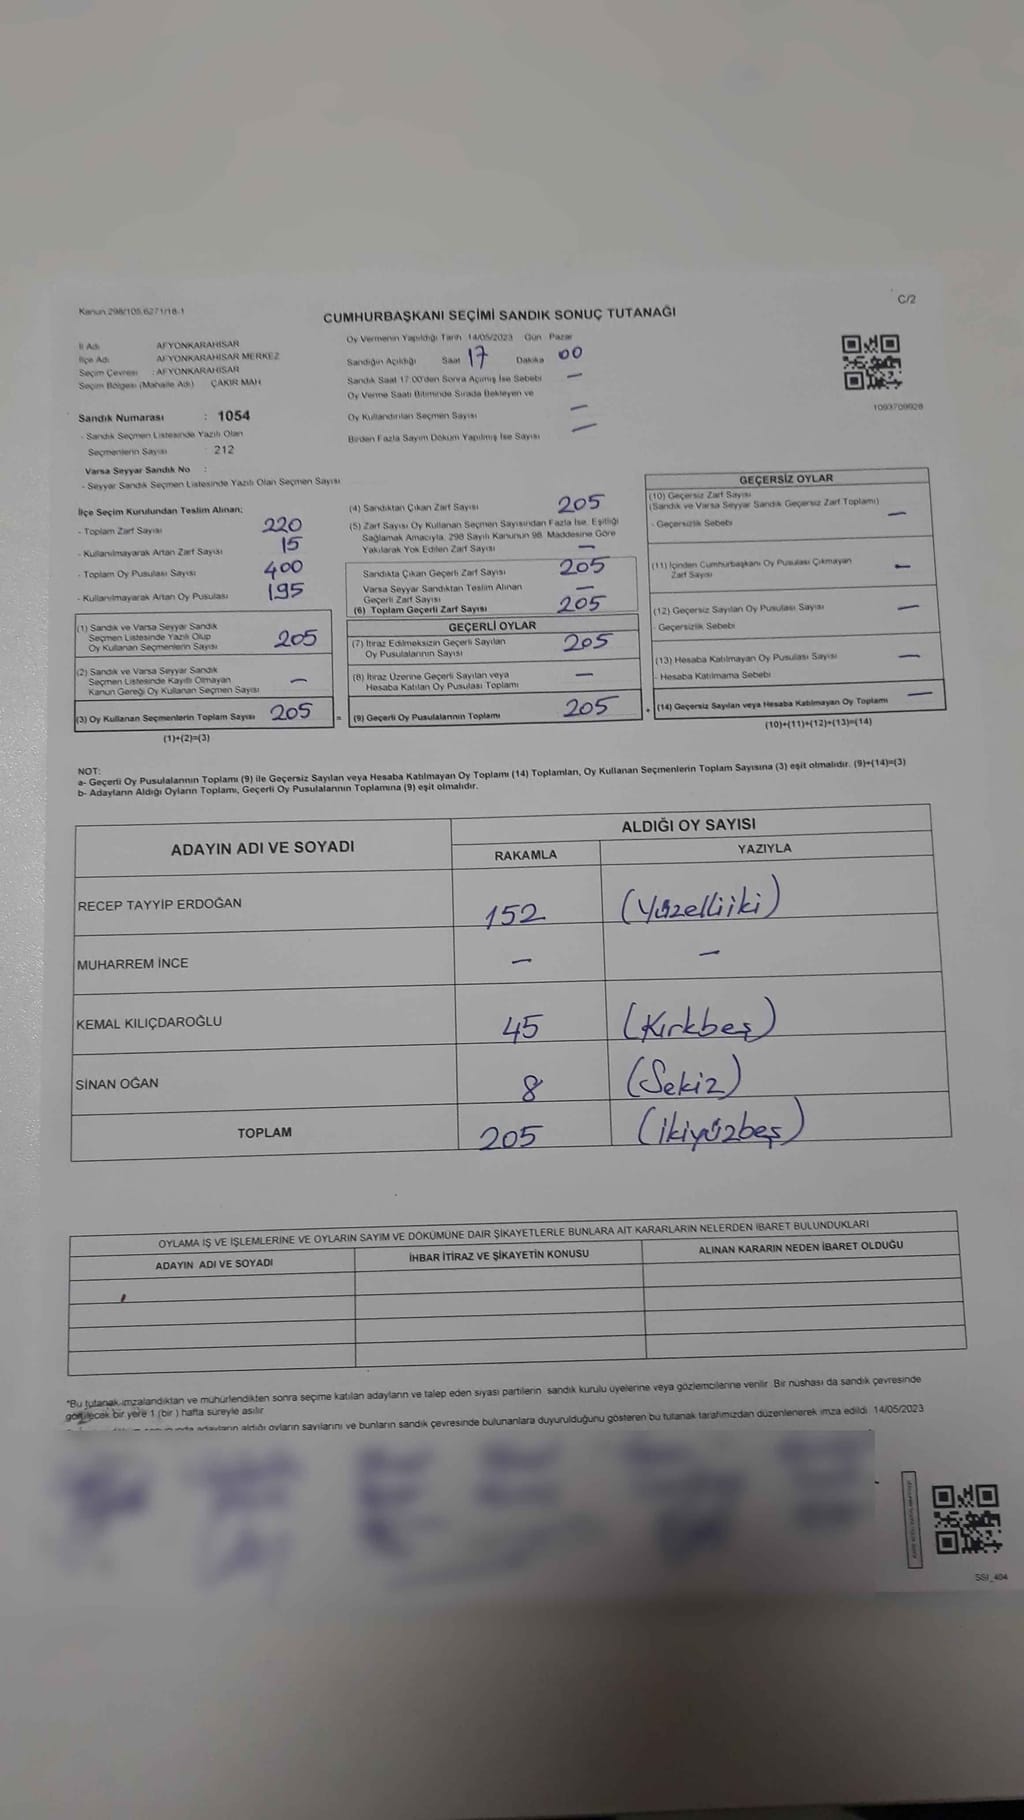 Kanun 298/105,6271/18-1
C/2
CUMHURBAŞKANI SEÇİMİ SANDIK SONUÇ TUTANAĞI
İl Adı AFYONKARAHİSAR
İlçe Adı AFYONKARAHİSAR MERKEZ
Seçim Çevresi : AFYONKARAHİSAR
Seçim Bölgesi (Mahalle Adı) ÇAKIR MAH
Sandık Numarası : 1054
- Sandık Seçmen Listesinde Yazılı Olan
Seçmenlerin Sayısı : 212
Varsa Seyyar Sandık No :
- Seyyar Sandık Seçmen Listesinde Yazılı Olan Seçmen Sayısı
Oy Vermenin Yapıldığı Tarih 14/05/2023 Gün Pazar
Sandığın Açıldığı Saat 17 Dakika 00
Sandık Saat 17:00'den Sonra Açılmış İse Sebebi —
Oy Verme Saati Bitiminde Sırada Bekleyen ve
Oy Kullandırılan Seçmen Sayısı —
Birden Fazla Sayım Döküm Yapılmış İse Sayısı —
1093709928
İlçe Seçim Kurulundan Teslim Alınan;
- Toplam Zarf Sayısı 220
- Kullanılmayarak Artan Zarf Sayısı 15
- Toplam Oy Pusulası Sayısı 400
- Kullanılmayarak Artan Oy Pusulası 195
(1) Sandık ve Varsa Seyyar Sandık
Seçmen Listesinde Yazılı Olup
Oy Kullanan Seçmenlerin Sayısı 205
(2) Sandık ve Varsa Seyyar Sandık
Seçmen Listesinde Kayıtlı Olmayan
Kanun Gereği Oy Kullanan Seçmen Sayısı —
(3) Oy Kullanan Seçmenlerin Toplam Sayısı 205 =
(1)+(2)=(3)
(4) Sandıktan Çıkan Zarf Sayısı 205
(5) Zarf Sayısı Oy Kullanan Seçmen Sayısından Fazla İse, Eşitliği
Sağlamak Amacıyla, 298 Sayılı Kanunun 98. Maddesine Göre
Yakılarak Yok Edilen Zarf Sayısı —
Sandıkta Çıkan Geçerli Zarf Sayısı 205
Varsa Seyyar Sandıktan Teslim Alınan
Geçerli Zarf Sayısı —
(6) Toplam Geçerli Zarf Sayısı 205
GEÇERLİ OYLAR
(7) İtiraz Edilmeksizin Geçerli Sayılan
Oy Pusulalarının Sayısı 205
(8) İtiraz Üzerine Geçerli Sayılan veya
Hesaba Katılan Oy Pusulası Toplamı —
(9) Geçerli Oy Pusulalarının Toplamı 205 +
GEÇERSİZ OYLAR
(10) Geçersiz Zarf Sayısı
(Sandık ve Varsa Seyyar Sandık Geçersiz Zarf Toplamı) —
- Geçersizlik Sebebi
(11) İçinden Cumhurbaşkanı Oy Pusulası Çıkmayan
Zarf Sayısı —
(12) Geçersiz Sayılan Oy Pusulası Sayısı —
- Geçersizlik Sebebi
(13) Hesaba Katılmayan Oy Pusulası Sayısı —
- Hesaba Katılmama Sebebi
(14) Geçersiz Sayılan veya Hesaba Katılmayan Oy Toplamı —
(10)+(11)+(12)+(13)=(14)
NOT:
a- Geçerli Oy Pusulalarının Toplamı (9) ile Geçersiz Sayılan veya Hesaba Katılmayan Oy Toplamı (14) Toplamları, Oy Kullanan Seçmenlerin Toplam Sayısına (3) eşit olmalıdır. (9)+(14)=(3)
b- Adayların Aldığı Oyların Toplamı, Geçerli Oy Pusulalarının Toplamına (9) eşit olmalıdır.
ADAYIN ADI VE SOYADI ALDIĞI OY SAYISI
RAKAMLA YAZIYLA
RECEP TAYYİP ERDOĞAN 152 (Yüzelliiki)
MUHARREM İNCE — —
KEMAL KILIÇDAROĞLU 45 (Kırkbeş)
SİNAN OĞAN 8 (Sekiz)
TOPLAM 205 (ikiyüzbeş)
OYLAMA İŞ VE İŞLEMLERİNE VE OYLARIN SAYIM VE DÖKÜMÜNE DAİR ŞİKAYETLERLE BUNLARA AİT KARARLARIN NELERDEN İBARET BULUNDUKLARI
ADAYIN ADI VE SOYADI İHBAR İTİRAZ VE ŞİKAYETİN KONUSU ALINAN KARARIN NEDEN İBARET OLDUĞU
*Bu tutanak imzalandıktan ve mühürlendikten sonra seçime katılan adayların ve talep eden siyasi partilerin sandık kurulu üyelerine veya gözlemcilerine verilir. Bir nüshası da sandık çevresinde
görülecek bir yere 1 (bir) hafta süreyle asılır
adayların aldığı oyların sayılarını ve bunların sandık çevresinde bulunanlara duyurulduğunu gösteren bu tutanak tarafımızdan düzenlenerek imza edildi 14/05/2023
SSI_404